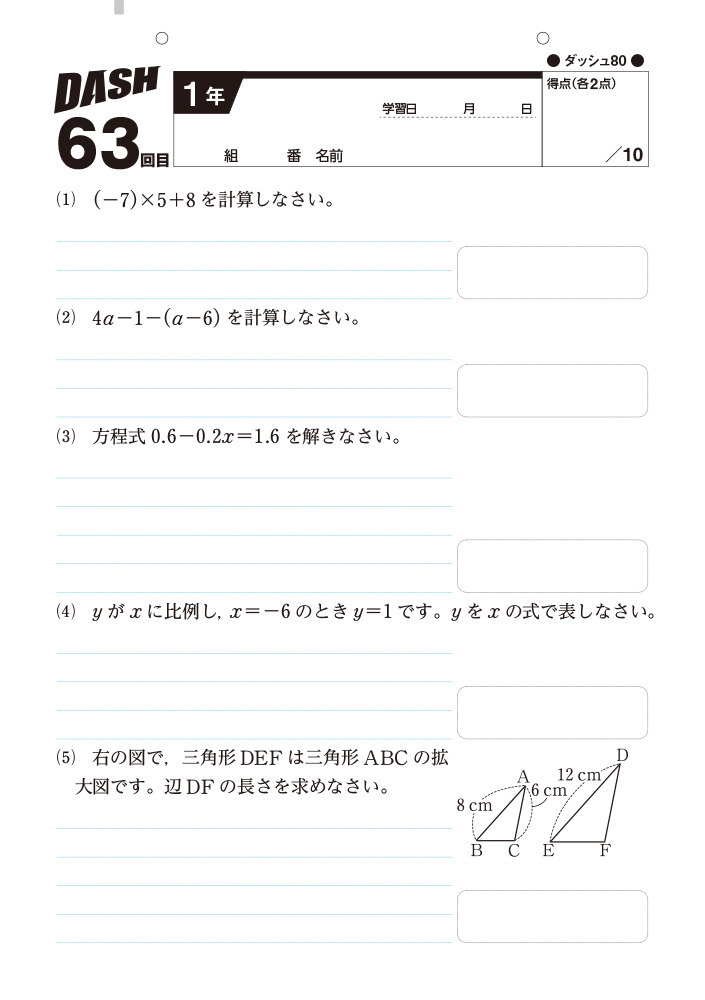 ●ダッシュ80●
DASH
63回目
1年
学習日 月 日
得点(各2点)
組 番 名前
／10
(1) (－7)×5＋8を計算しなさい。
(2) 4a－1－(a－6)を計算しなさい。
(3) 方程式0.6－0.2x＝1.6を解きなさい。
(4) yがxに比例し，x＝－6のときy＝1です。yをxの式で表しなさい。
(5) 右の図で，三角形DEFは三角形ABCの拡
大図です。辺DFの長さを求めなさい。
D
12 cm
A
6 cm
8 cm
B C E F